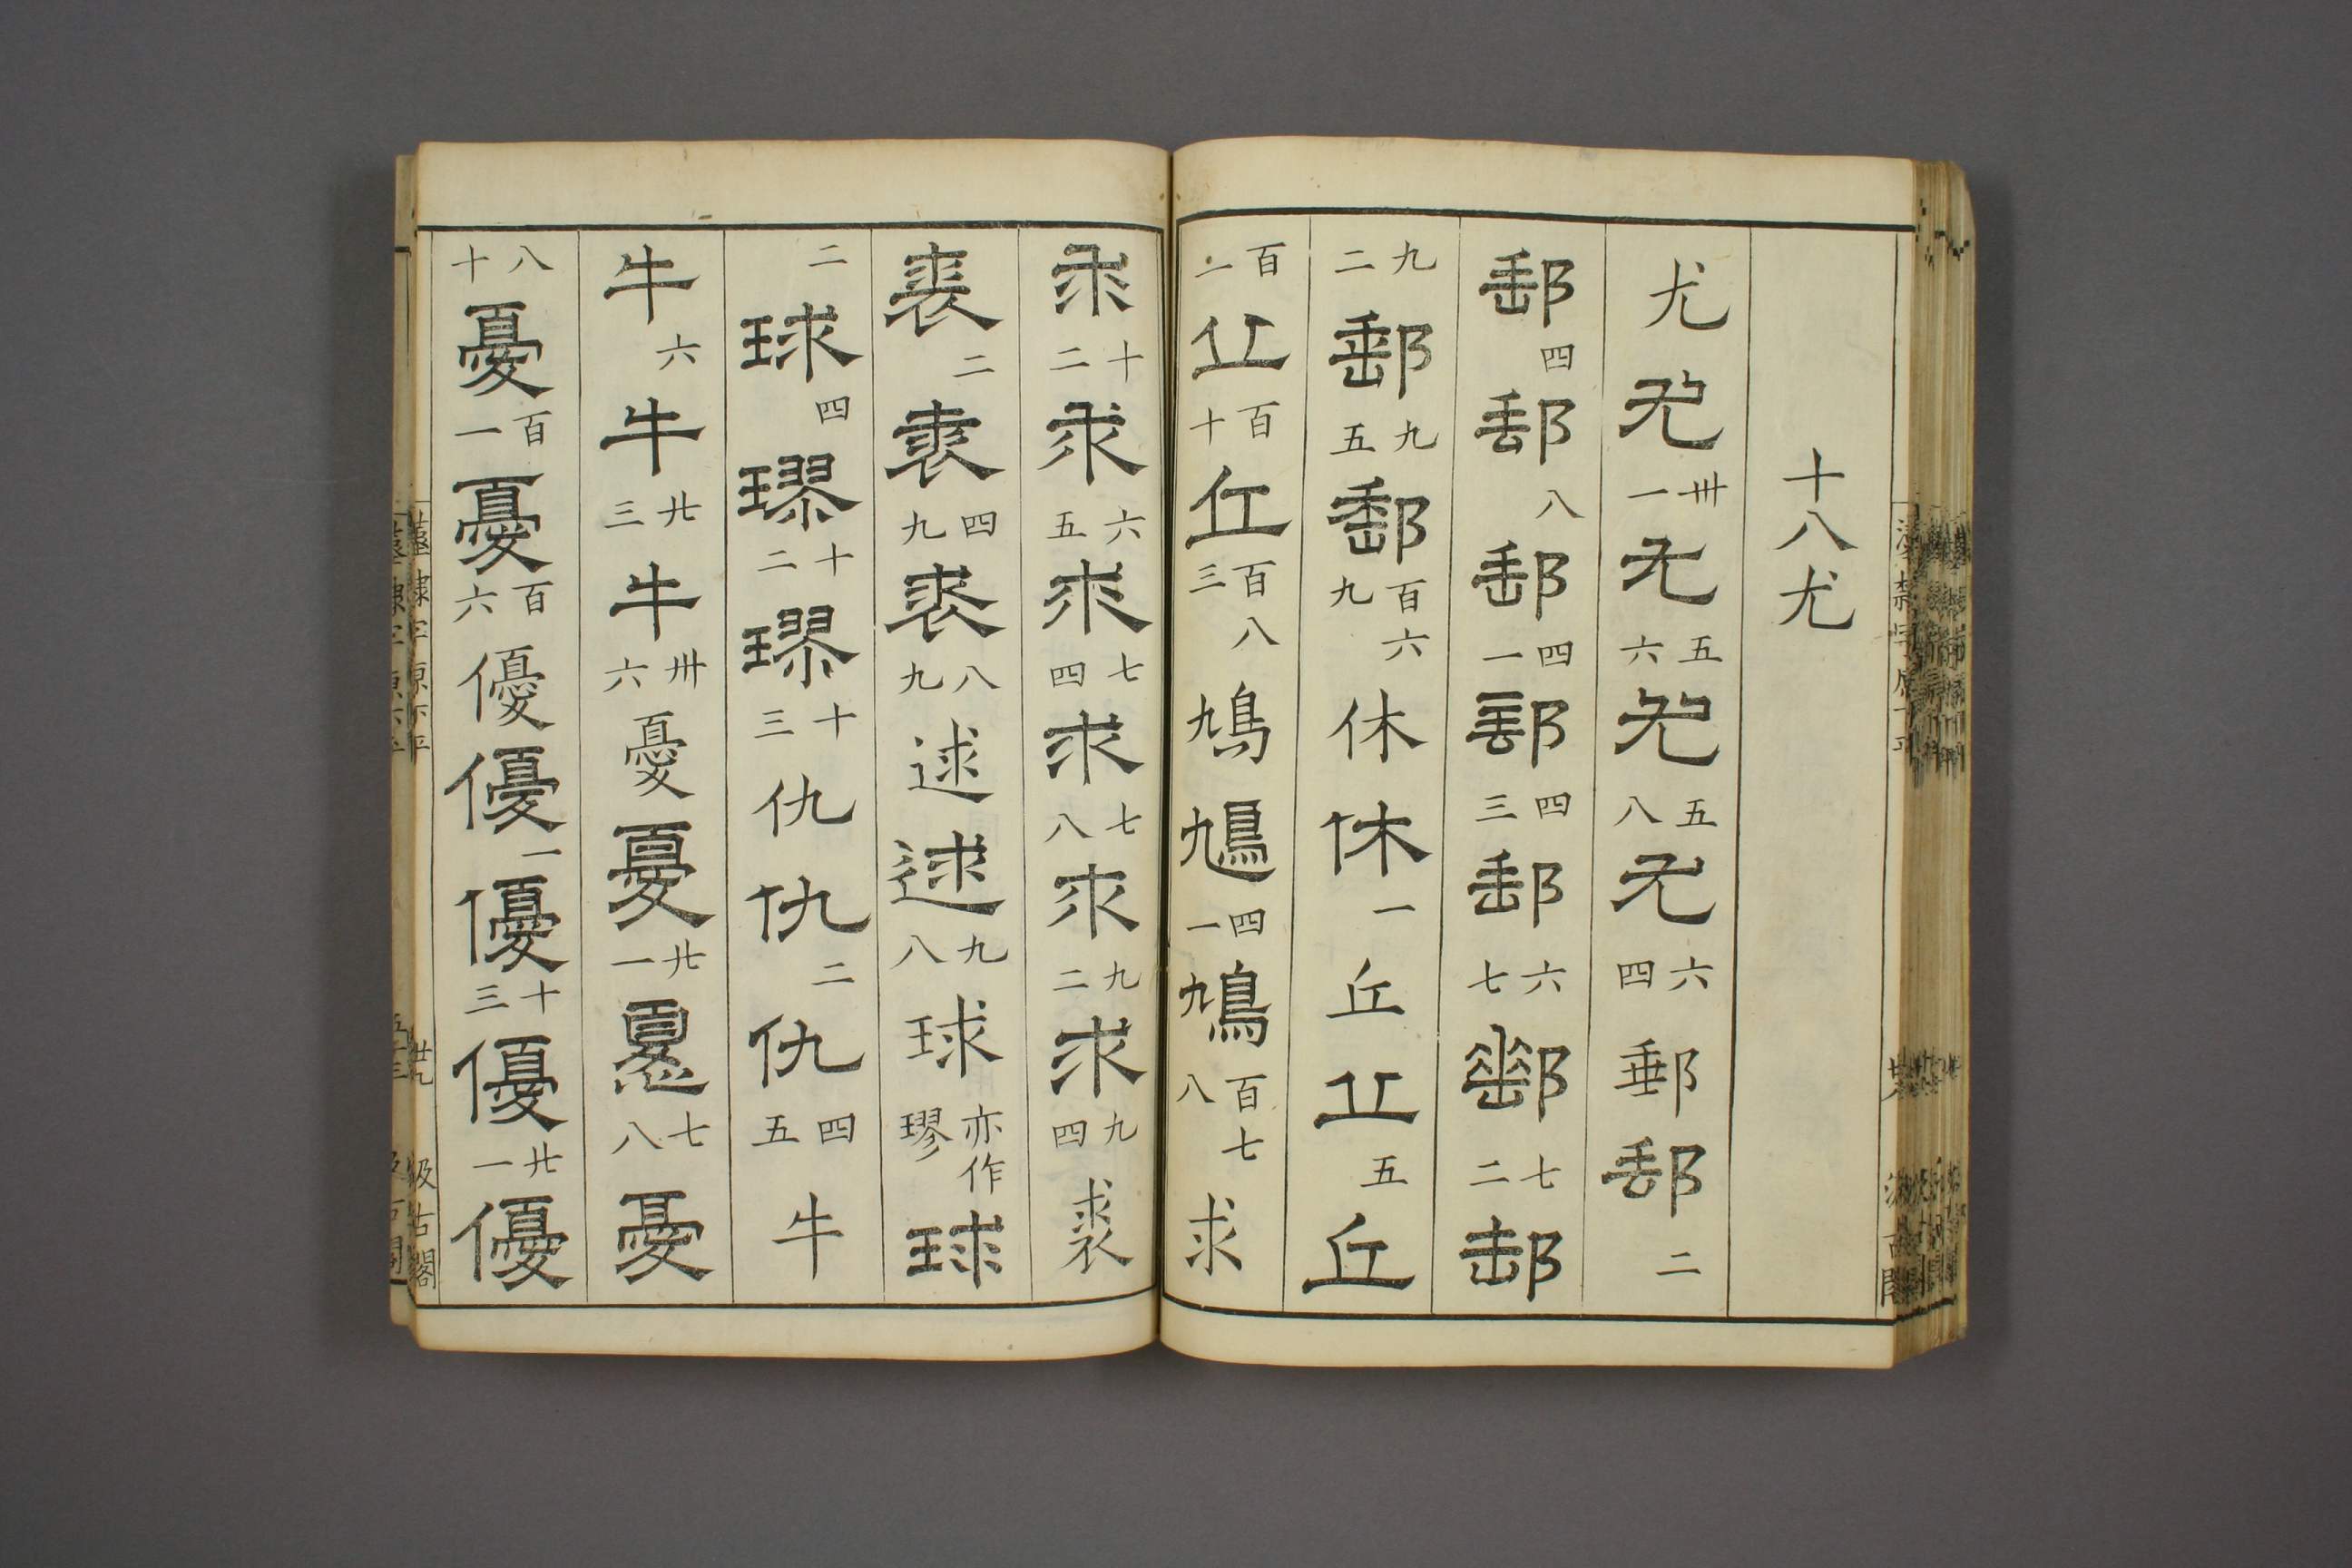 十八尤
尤尤卅一尤五六尤五八尤六四郵郵二
郵四郵八郵四一郵四三郵六七郵七二郵
九二郵九五郵百六九休休一丘丘五丘
百二丘百十丘百八三鳩鳩四一鳩百七八求
求十二求六五求七四求七八求九二求九四裘
裘二裘四九裘八九逑逑九八球亦作璆球
二球四璆十二璆十三仇仇二仇四五牛
牛六牛廿三牛卅六憂憂廿一憂七八憂
八十憂百一憂百六優優一優十三優廿一優
汲古閣